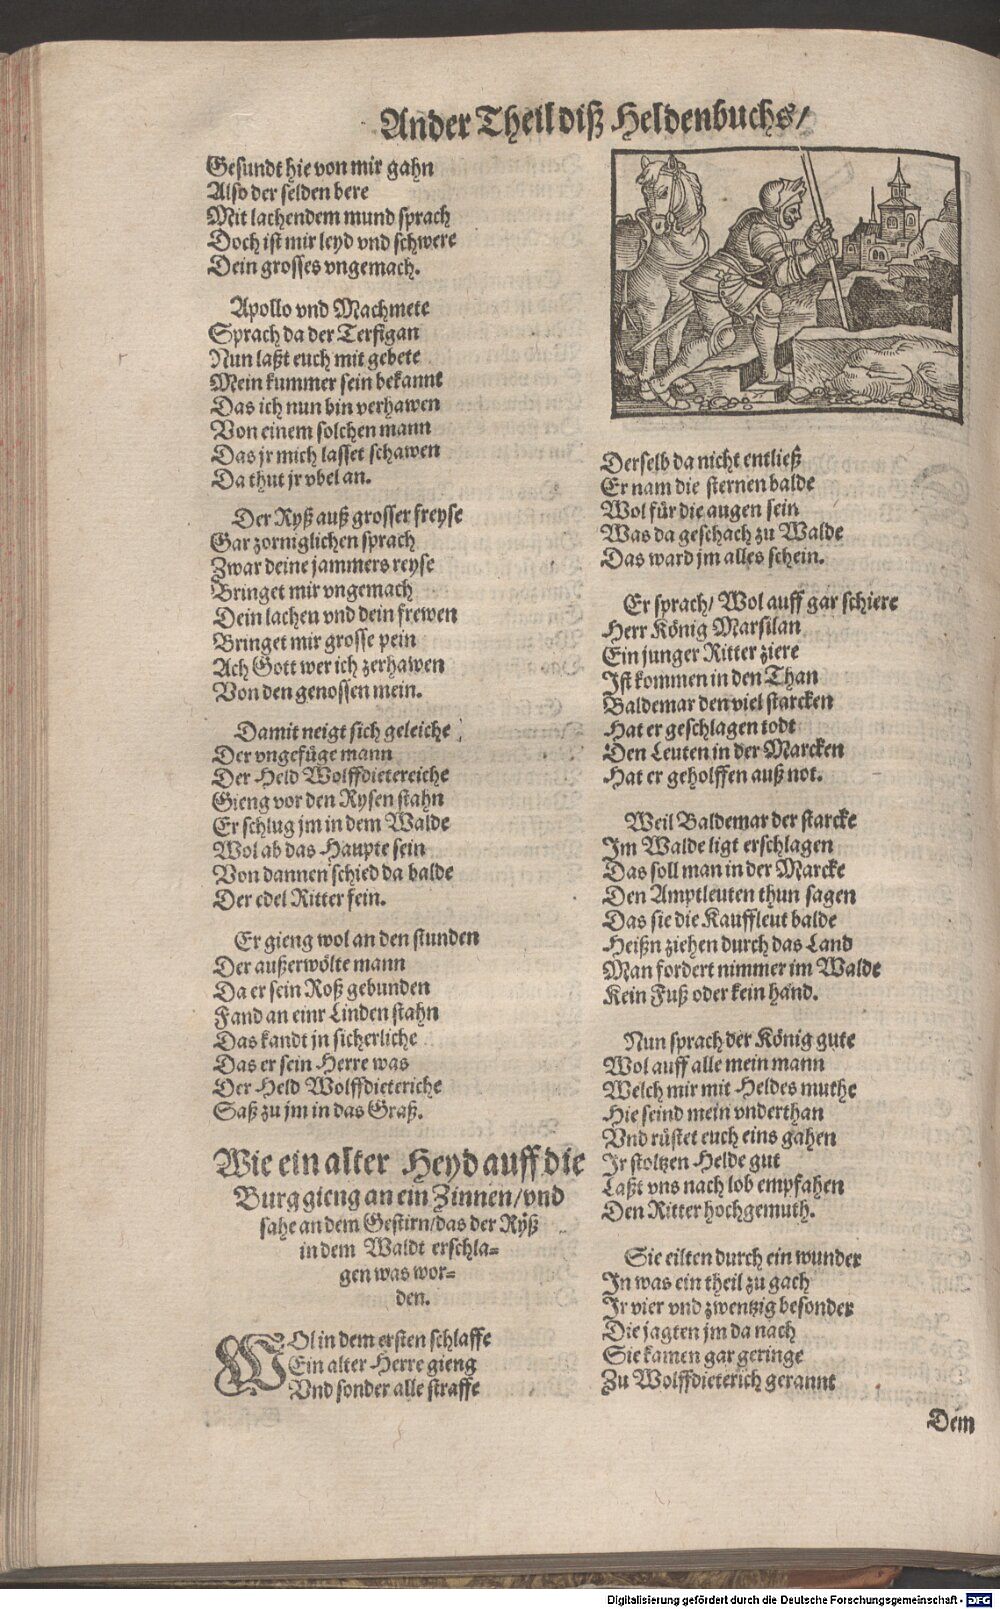 Ander Theil diß Heldenbuchs/
Gesundt hie von mir gahn
Also der selden bere
Mit lachendem mund sprach
Doch ist mir leyd vnd schwere
Dein grosses vngemach.
Apollo vnd Machmete
Sprach da der Terfigan
Nun laßt euch mit gebete
Mein kummer sein bekannt
Das ich nun bin verhawen
Von einem solchen mann
Das jr mich lasset schawen
Da thut jr vbel an.
Der Ryß auß grosser freyse
Gar zorniglichen sprach
Zwar deine jammers reyse
Bringet mir vngemach
Dein lachen vnd dein frewen
Bringet mir grosse pein
Ach Gott wer ich zerhawen
Von den genossen mein.
Damit neigt sich geleiche
Der vngefüge mann
Der Held Wolffdietereiche
Gieng vor den Rysen stahn
Er schlug jm in dem Walde
Wol ab das Haupte sein
Von dannen schied da balde
Der edel Ritter fein.
Er gieng wol an den stunden
Der außerwölte mann
Da er sein Roß gebunden
Fand an einr Linden stahn
Das kandt jn sicherliche
Das er sein Herre was
Der Held Wolffdieteriche
Saß zu jm in das Graß.
Wie ein alter Heyd auff die
Burg gieng an ein Zinnen/vnd
sahe an dem Gestirn/das der Ryß
in dem Waldt erschla-
gen was wor-
den.
WOl in dem ersten schlaffe
Ein alter Herre gieng
Vnd sonder alle straffe
Derselb da nicht entließ
Er nam die sternen balde
Wol für die augen sein
Was da geschach zu Walde
Das ward jm alles schein.
Er sprach/ Wol auff gar schiere
Herr König Marsilan
Ein junger Ritter ziere
Ist kommen in den Than
Baldemar den viel starcken
Hat er geschlagen todt
Den Leuten in der Marcken
Hat er geholffen auß not.
Weil Baldemar der starcke
Im Walde ligt erschlagen
Das soll man in der Marcke
Den Amptleuten thun sagen
Das sie die Kauffleut balde
Heißn ziehen durch das Land
Man fordert nimmer im Walde
Kein Fuß oder kein hand.
Nun sprach der König gute
Wol auff alle mein mann
Welch mir mit Heldes muthe
Hie seind mein vnderthan
Vnd rüstet euch eins gahen
Ir stoltzen Helde gut
Laßt vns nach lob empfahen
Den Ritter hochgemuth.
Sie eilten durch ein wunder
In was ein theil zu gach
Ir vier vnd zwentzig besonder
Die jagten jm da nach
Sie kamen gar geringe
Zu Wolffdieterich gerannt
Dem
Digitalisierung gefördert durch die Deutsche Forschungsgemeinschaft - DFG